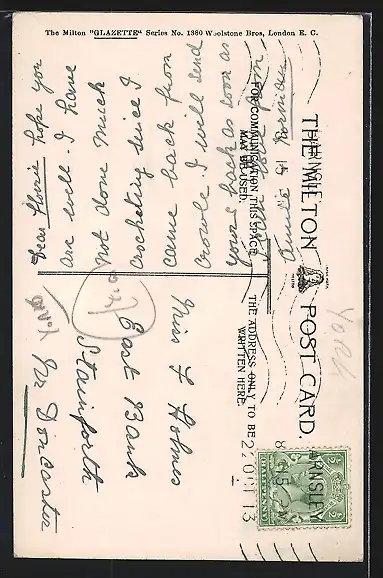 The Milton "GLAZETTE" Series No. 1380 Woolstone Bros, London E. C.
THE MILTON POST CARD.
FOR COMMUNICATION THIS SPACE MAY BE USED.
THE ADDRESS ONLY TO BE WRITTEN HERE.
Dear Florrie hope you
are well. I have
not done much
crocheting since I
came back from
Crowle. I will send
yours back as soon as
Annie Norman
Miss F Holmes
East Bank
Stainforth
Nr Doncaster
York
ARNSLEY
8 15 PM
22 OCT 13